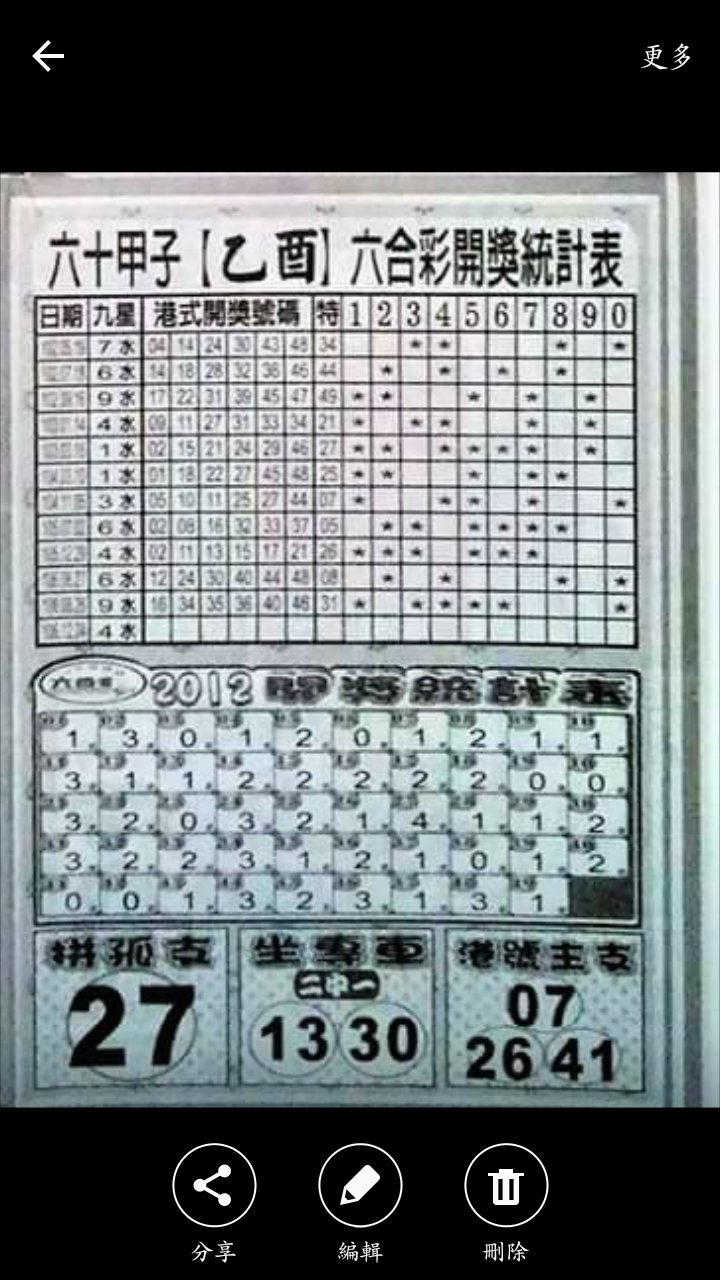 更多
六十甲子【乙酉】六合彩開獎統計表
日期 九星 港式開獎號碼 特 1 2 3 4 5 6 7 8 9 0
7 水 04 14 24 30 43 48 34 ★ ★ ★ ★
6 水 14 18 28 32 36 46 44 ★ ★ ★ ★
9 水 17 22 31 39 45 47 49 ★ ★ ★ ★ ★
4 水 09 11 27 31 33 34 21 ★ ★ ★ ★ ★
1 水 02 15 21 24 29 46 27 ★ ★ ★ ★ ★ ★ ★
1 水 01 18 22 27 45 48 25 ★ ★ ★ ★ ★
3 水 05 10 11 25 27 44 07 ★ ★ ★ ★ ★
6 水 02 08 16 32 33 37 05 ★ ★ ★ ★ ★ ★
4 水 02 11 13 15 17 21 26 ★ ★ ★ ★ ★ ★
6 水 12 24 30 40 44 48 08 ★ ★ ★ ★
9 水 16 34 35 36 40 46 31 ★ ★ ★ ★ ★ ★
4 水
2012 開獎統計表
1 3 0 1 2 0 1 2 1 1
3 1 1 2 2 2 2 2 0 0
3 2 0 3 2 1 4 1 1 2
3 2 2 3 1 2 1 0 1 2
0 0 1 3 2 3 1 3 1
拼孤支 坐專車 港號主支
二中一
27 13 30 07
26 41
分享 編輯 刪除